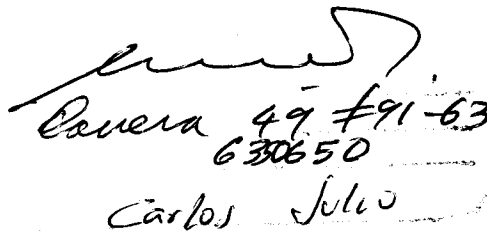 Carrera 49 #91-63
6330650
Carlos Julio